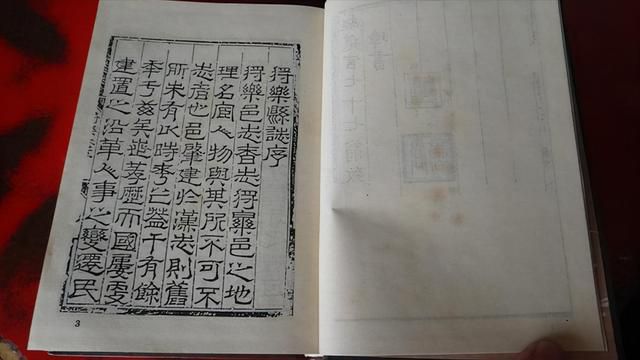 將樂縣誌序
將樂邑志者志將樂邑之地
理名宦人物與其所不可不
志者也邑肇建於漢志則舊
所未有此時 益千有餘
年于茲矣 歷而國屢更
建置之沿革人事之變遷民
3